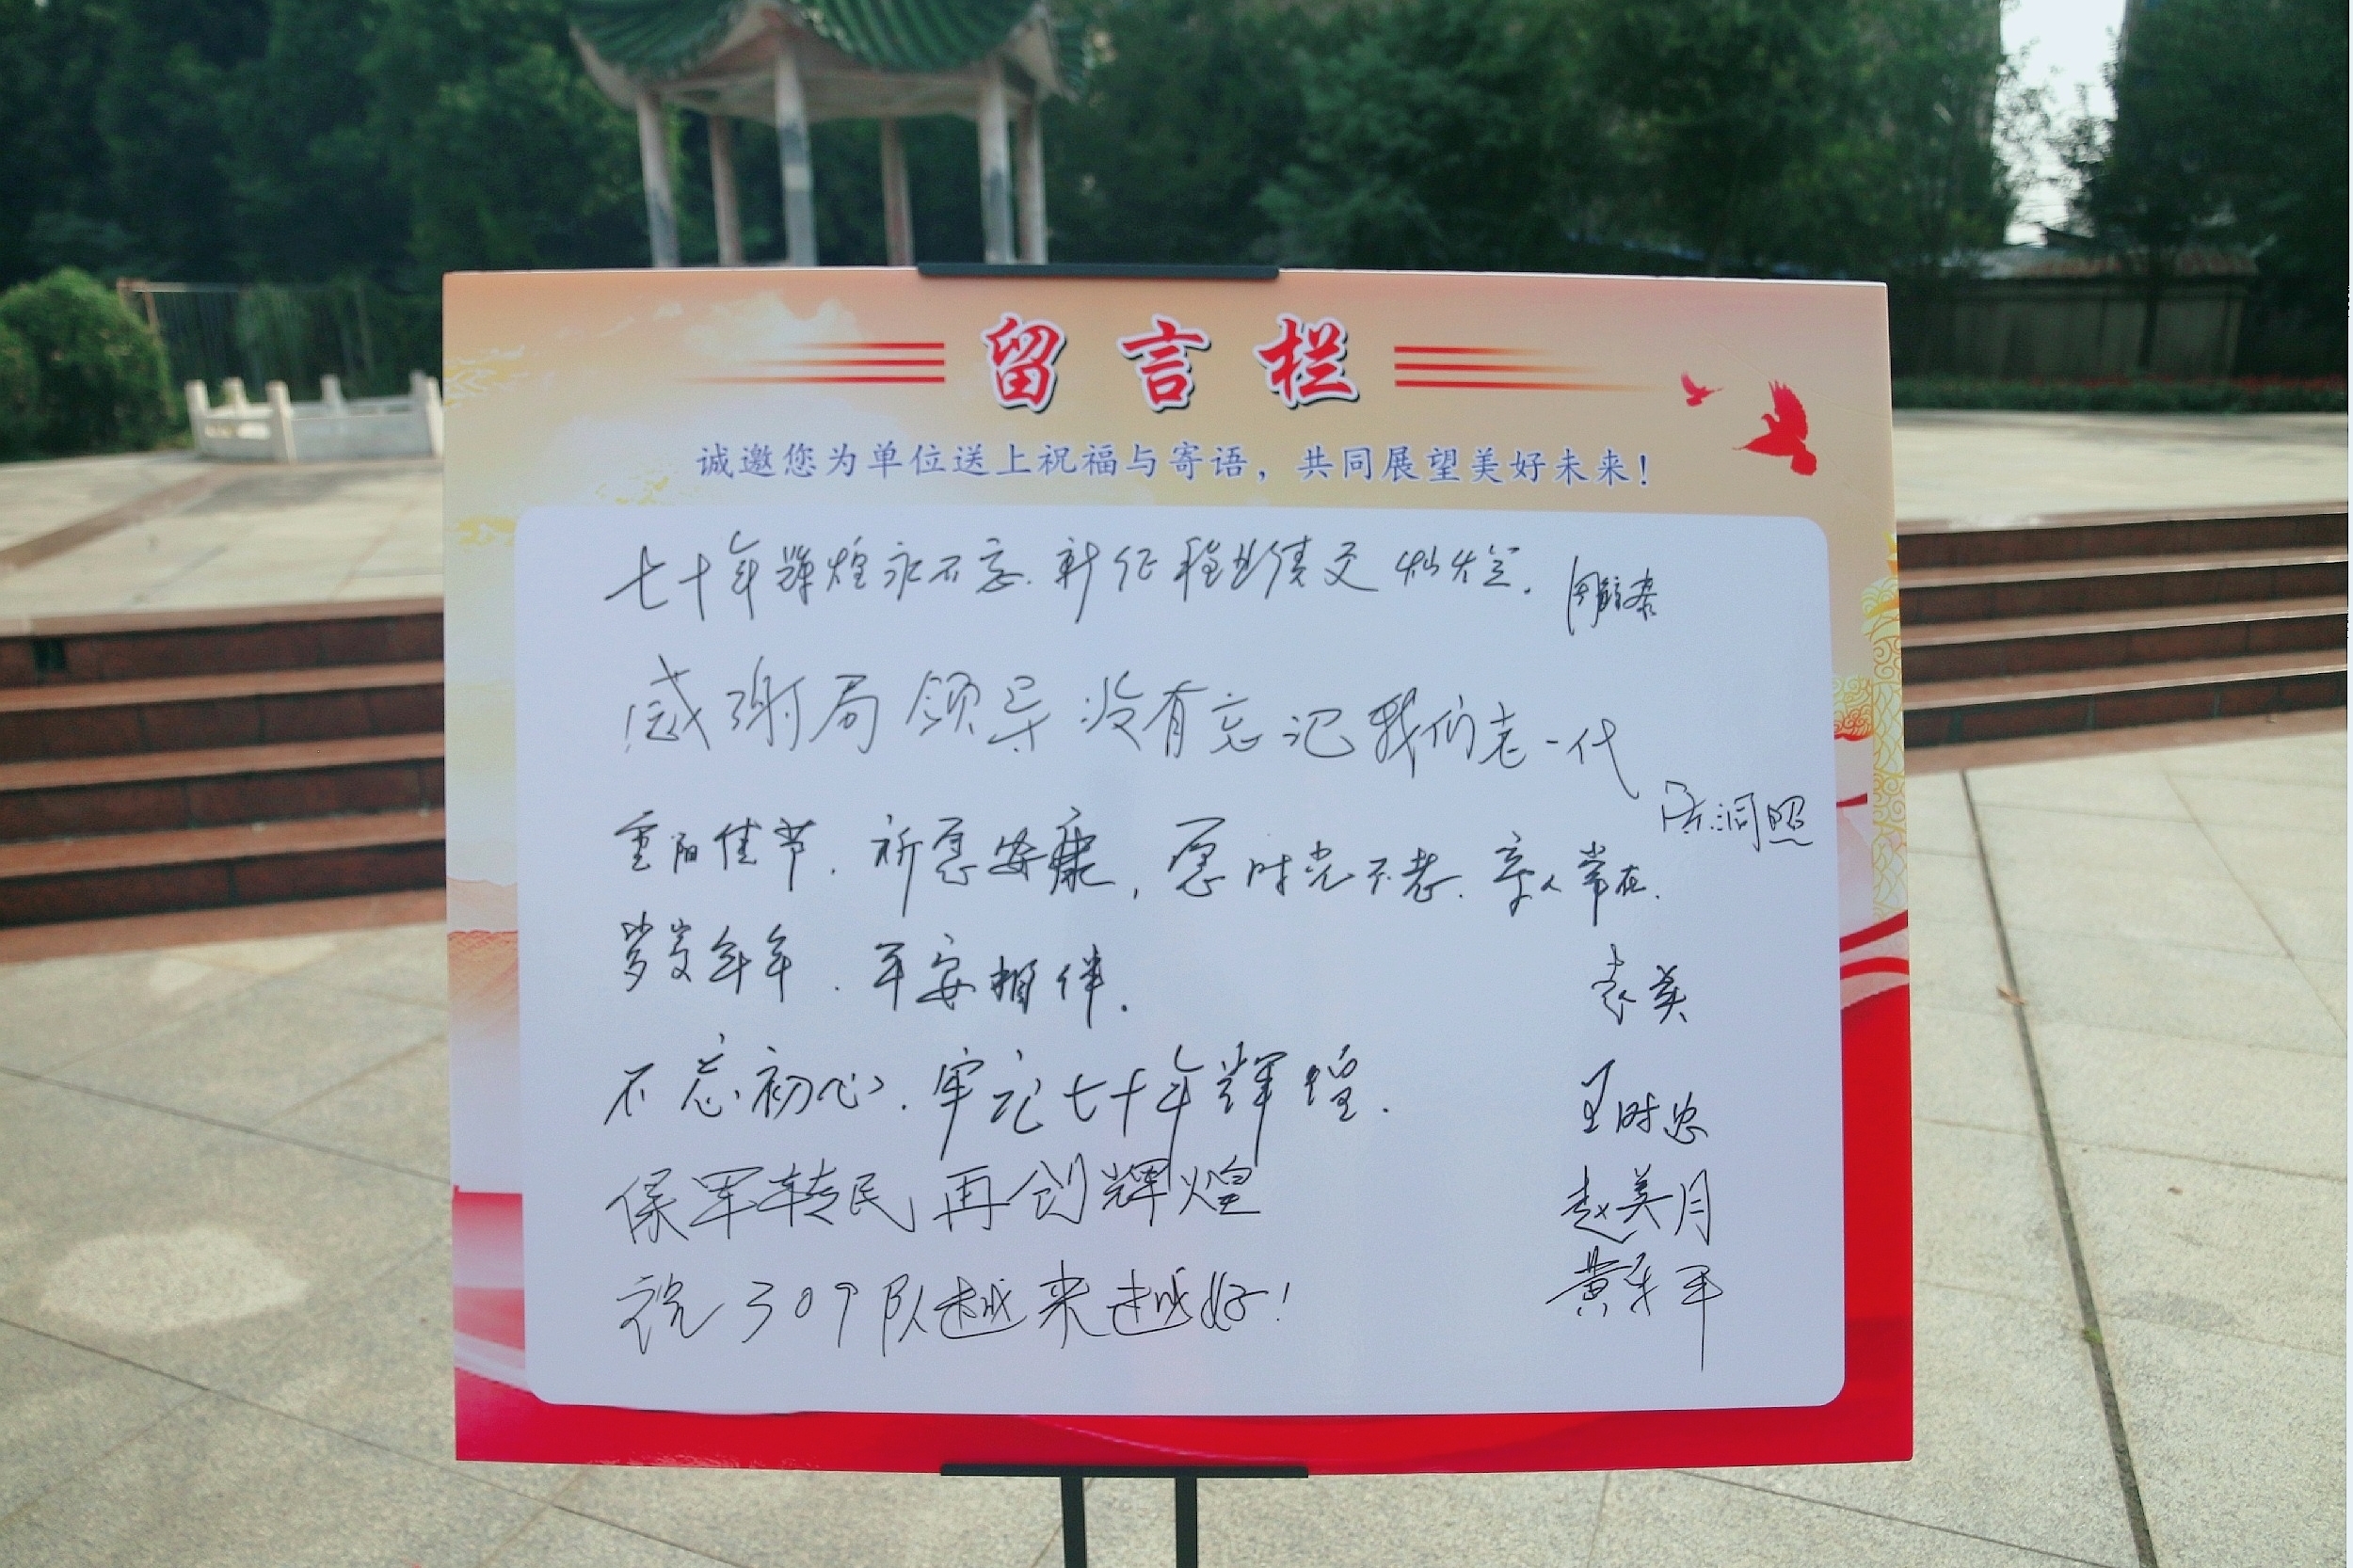 留言栏
诚邀您为单位送上祝福与寄语，共同展望美好未来！
七十年辉煌永不忘.新征程业绩交灿烂.
感谢局领导没有忘记我们老一代
重阳佳节.祈愿安康,愿时光不老.亲人常在.
岁岁年年.平安相伴.
袁美
不忘初心.牢记七十年辉煌.
王时忠
保军转民再创辉煌
赵美月
祝309队越来越好!